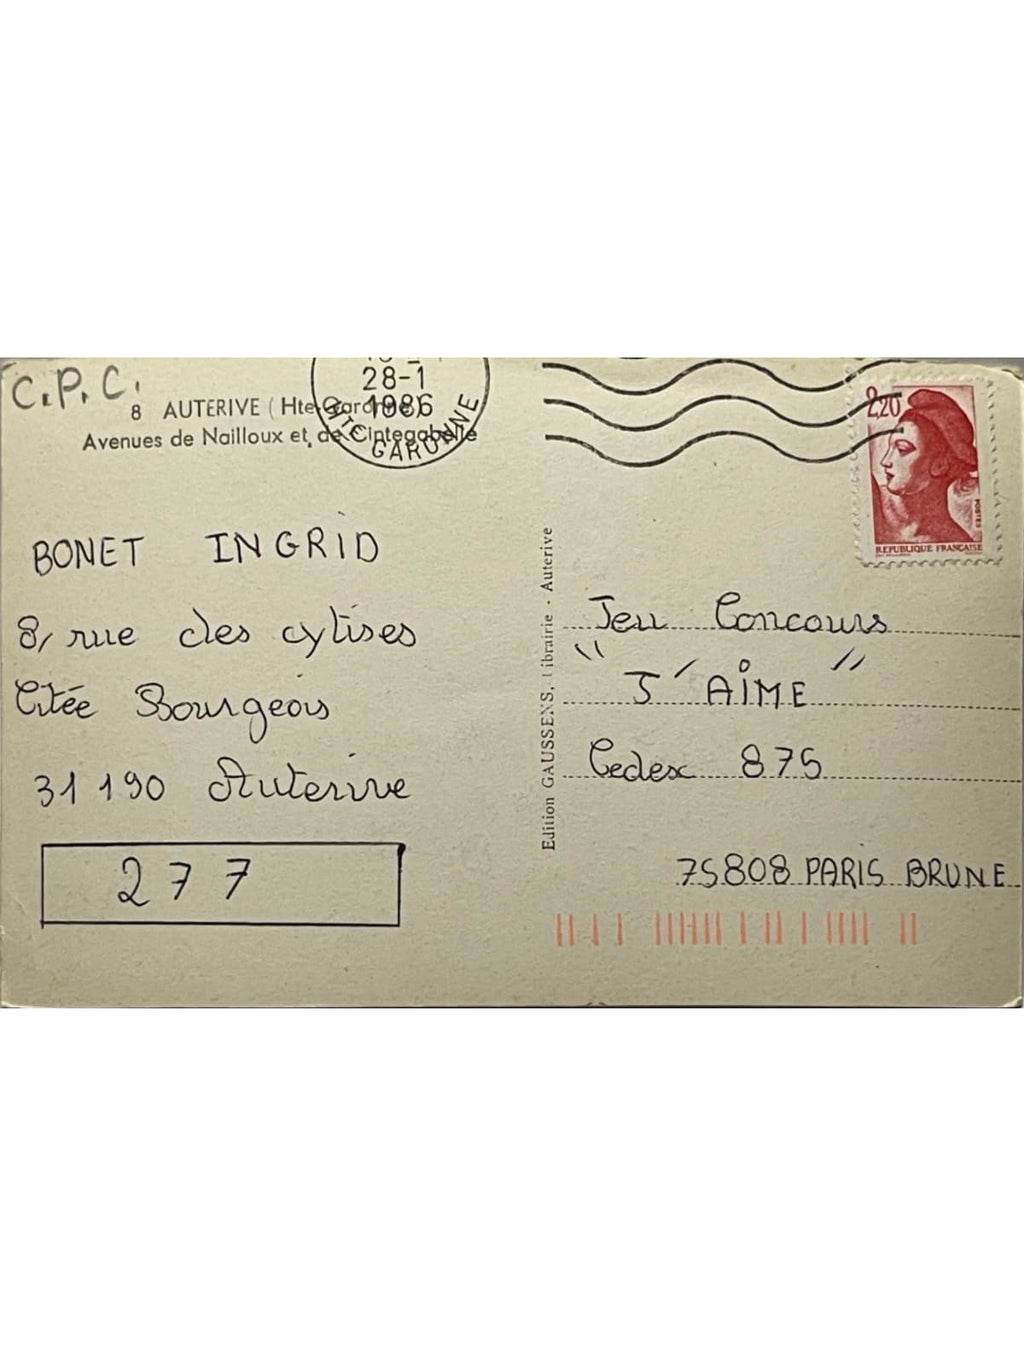 C.P.C.
8 AUTERIVE (Hte-Garonne)
Avenues de Nailloux et de Cintegabelle
28-1
1986
HTE GARONNE
2,20
POSTES
REPUBLIQUE FRANÇAISE
BONET INGRID
8, rue des cytises
Citée Bourgeois
31 190 Auterive
277
Edition GAUSSENS, Librairie - Auterive
Jeu Concours
"J'AIME"
Cedex 875
75808 PARIS BRUNE